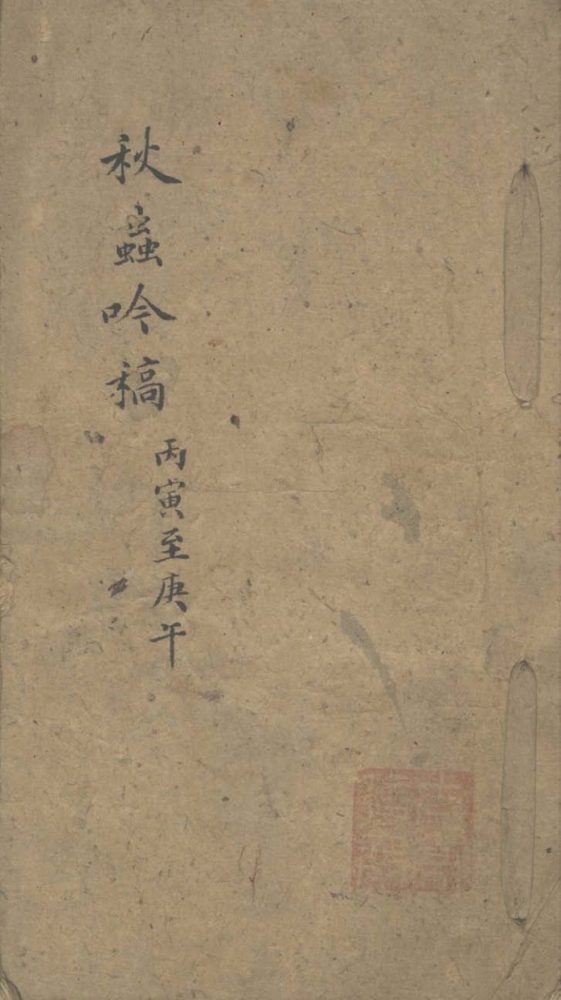 秋蟲吟稿
丙寅至庚午